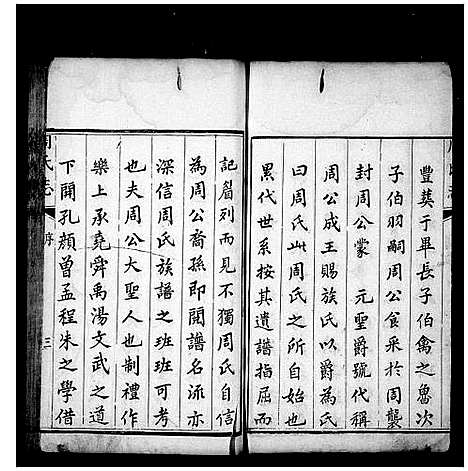 豐葬于畢長子伯禽之魯次
子伯羽嗣周公食采於周襲
封周公黨 元聖爵號代稱
周公成王賜族氏以爵為氏
曰周氏此周氏之所自始以
累代世系按其遺譜指屈而
記臚列而見不獨周氏自信
為周公裔孫即閱譜名流亦
深信周氏族譜之班班可考
也夫周公大聖人也制禮作
樂上承堯舜禹湯文武之道
下開孔顏曾孟程朱之學借
周氏志
序
三